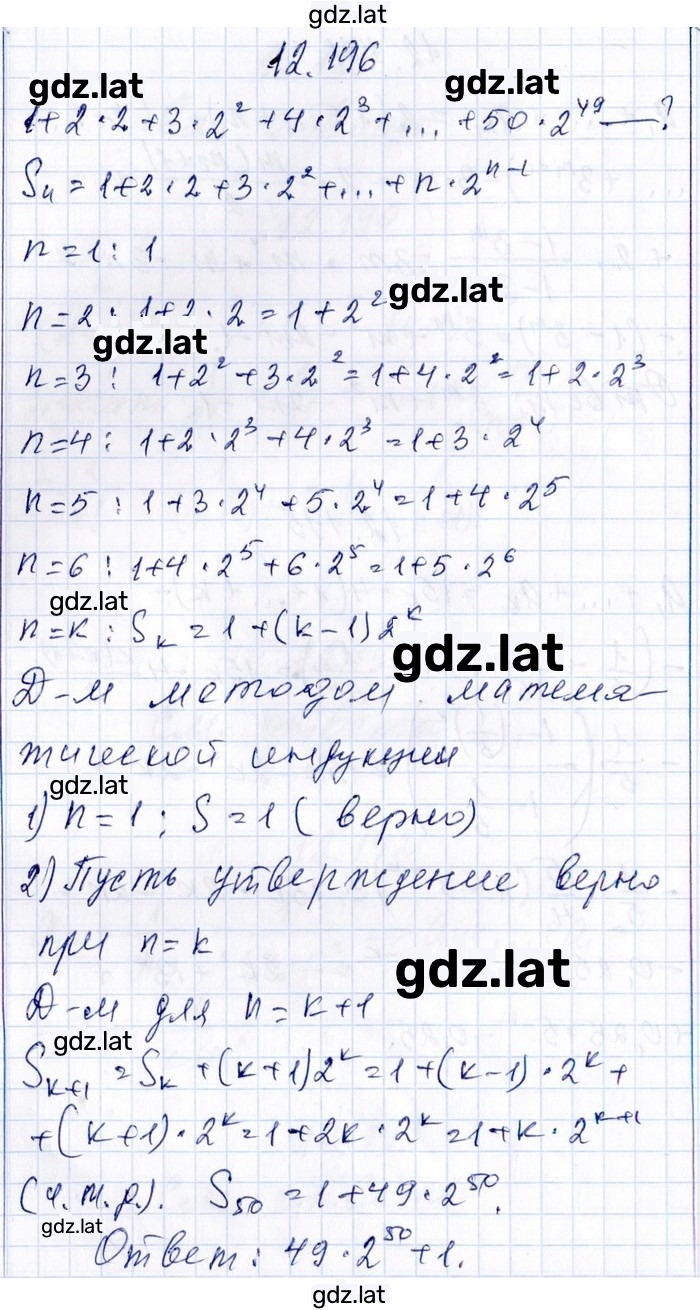 gdz.lat
12.196
gdz.lat gdz.lat
1+2·2+3·2²+4·2³+...+50·2⁴⁹ — ?
Sₙ = 1+2·2+3·2²+...+n·2ⁿ⁻¹
n=1: 1
gdz.lat
n=2: 1+2·2=1+2²
gdz.lat
n=3: 1+2²+3·2²=1+4·2²=1+2·2³
n=4: 1+2·2³+4·2³=1+3·2⁴
n=5: 1+3·2⁴+5·2⁴=1+4·2⁵
n=6: 1+4·2⁵+6·2⁵=1+5·2⁶
gdz.lat
n=k: Sₖ=1+(k-1)2ᵏ
gdz.lat
Д-м методом матема-
тической индукции
gdz.lat
1) n=1; S=1 (верно)
2) Пусть утверждение верно
при n=k
gdz.lat
Д-м для n=k+1
gdz.lat
Sₖ₊₁=Sₖ+(k+1)2ᵏ=1+(k-1)·2ᵏ+
+(k+1)·2ᵏ=1+2k·2ᵏ=1+k·2ᵏ⁺¹
(ч.т.д.). S₅₀=1+49·2⁵⁰.
gdz.lat
Ответ: 49·2⁵⁰+1.
gdz.lat